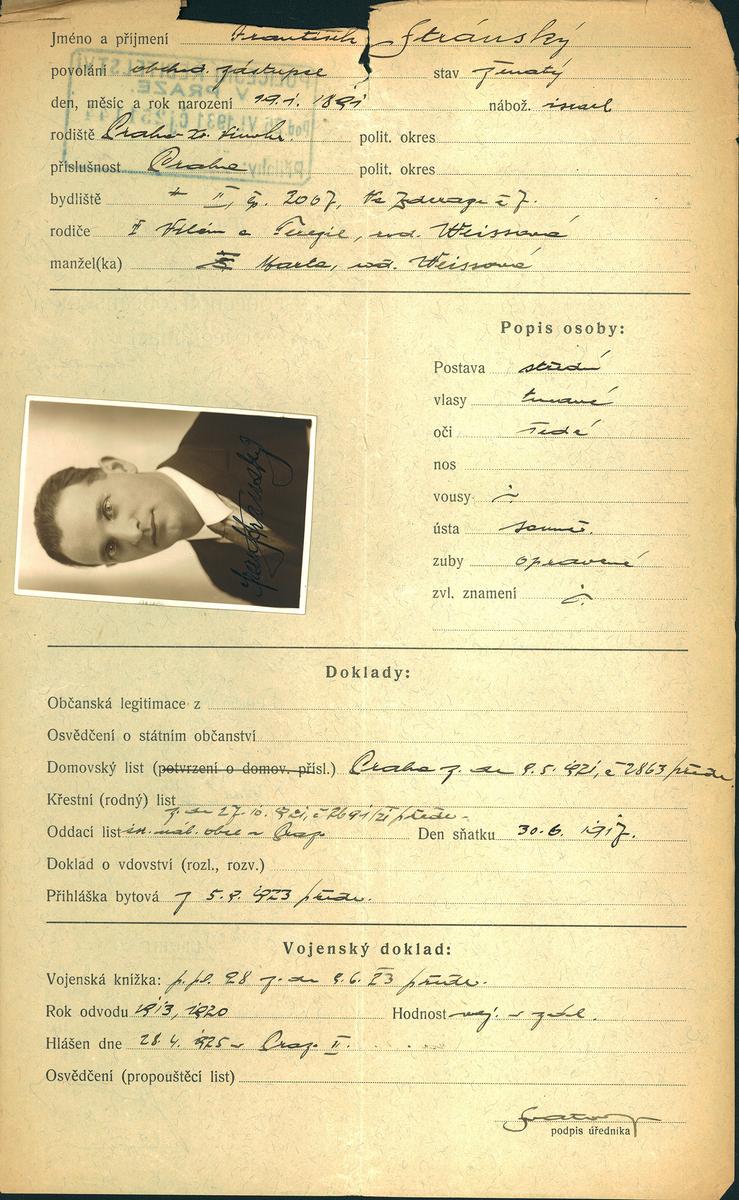 Jméno a příjmení František Stránský
povolání obchod. zástupce stav ženatý
den, měsíc a rok narození 19.1. 1891 nábož. israel
rodiště Praha polit. okres
příslušnost Praha polit. okres
bydliště II, čp. 2007, Na Zderaze č 7.
rodiče Vilém a Terezie, roz. Weissová
manžel(ka) Marta, roz. Weissová
Popis osoby:
Postava střední
vlasy tmavé
oči šedé
nos
vousy
ústa souměr.
zuby opravené
zvl. znamení
Doklady:
Občanská legitimace z
Osvědčení o státním občanství
Domovský list (potvrzení o domov. přísl.) Praha z. dne 9.5. 1921, č 2863
Křestní (rodný) list
z. dne 27.10. 1921, č
Oddací list isr. náb. obce v Praze Den sňatku 30.6. 1917.
Doklad o vdovství (rozl., rozv.)
Přihláška bytová z 5.9. 1923 předl.
Vojenský doklad:
Vojenská knížka: p. pl. 28 z. dne 9.6. 23 předl.
Rok odvodu 1913, 1920 Hodnost voj. v zál.
Hlášen dne 28.4. 1925 v Praze II.
Osvědčení (propouštěcí list)
podpis úředníka